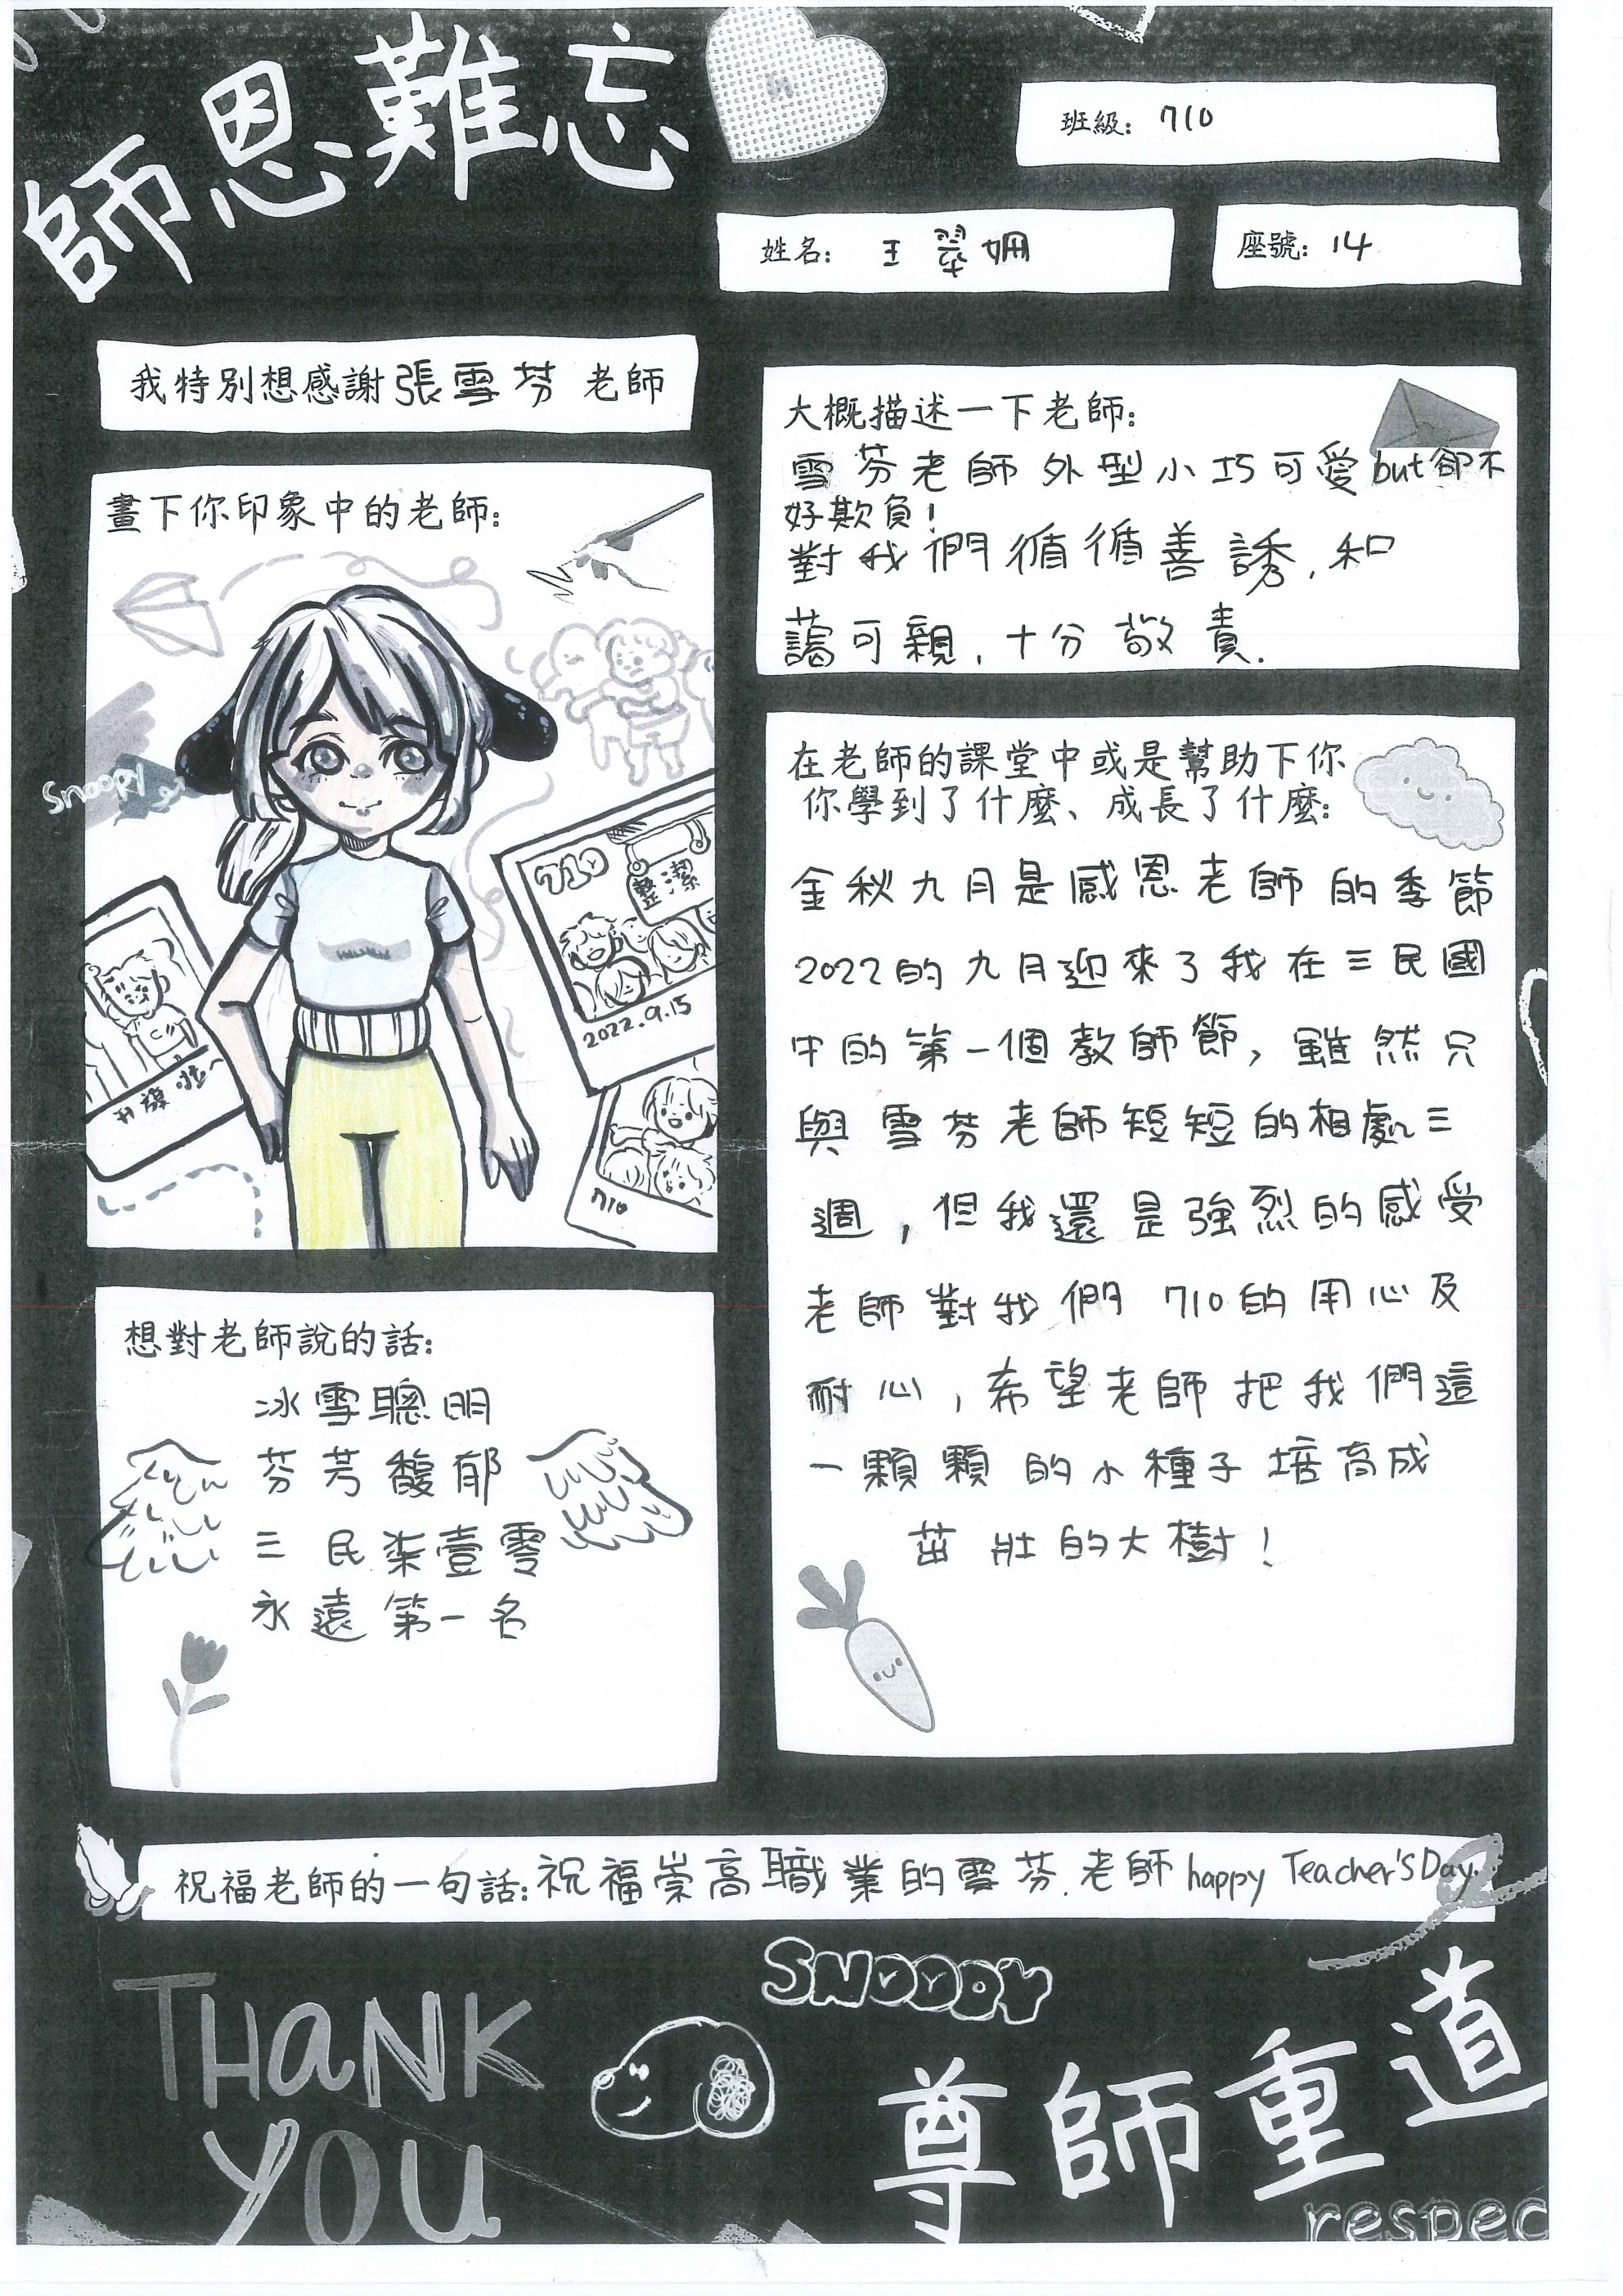 師恩難忘
班級：710
姓名：王翠姍
座號：14
我特別想感謝張雪芬老師
畫下你印象中的老師：
Snoopy
710
整潔
2022.9.15
710
大概描述一下老師：
雪芬老師外型小巧可愛but卻不
好欺負！
對我們循循善誘，和
藹可親，十分敬責.
在老師的課堂中或是幫助下你
你學到了什麼、成長了什麼：
金秋九月是感恩老師的季節
2022的九月迎來了我在三民國
中的第一個教師節，雖然只
與雪芬老師短短的相處三
週，但我還是強烈的感受
老師對我們710的用心及
耐心，希望老師把我們這
一顆顆的小種子培育成
茁壯的大樹！
想對老師說的話：
冰雪聰明
芬芳馥郁
三民柒壹零
永遠第一名
祝福老師的一句話：祝福崇高職業的雪芬老師happy Teacher's Day.
THANK
YOU
SNOOPY
尊師重道
respec